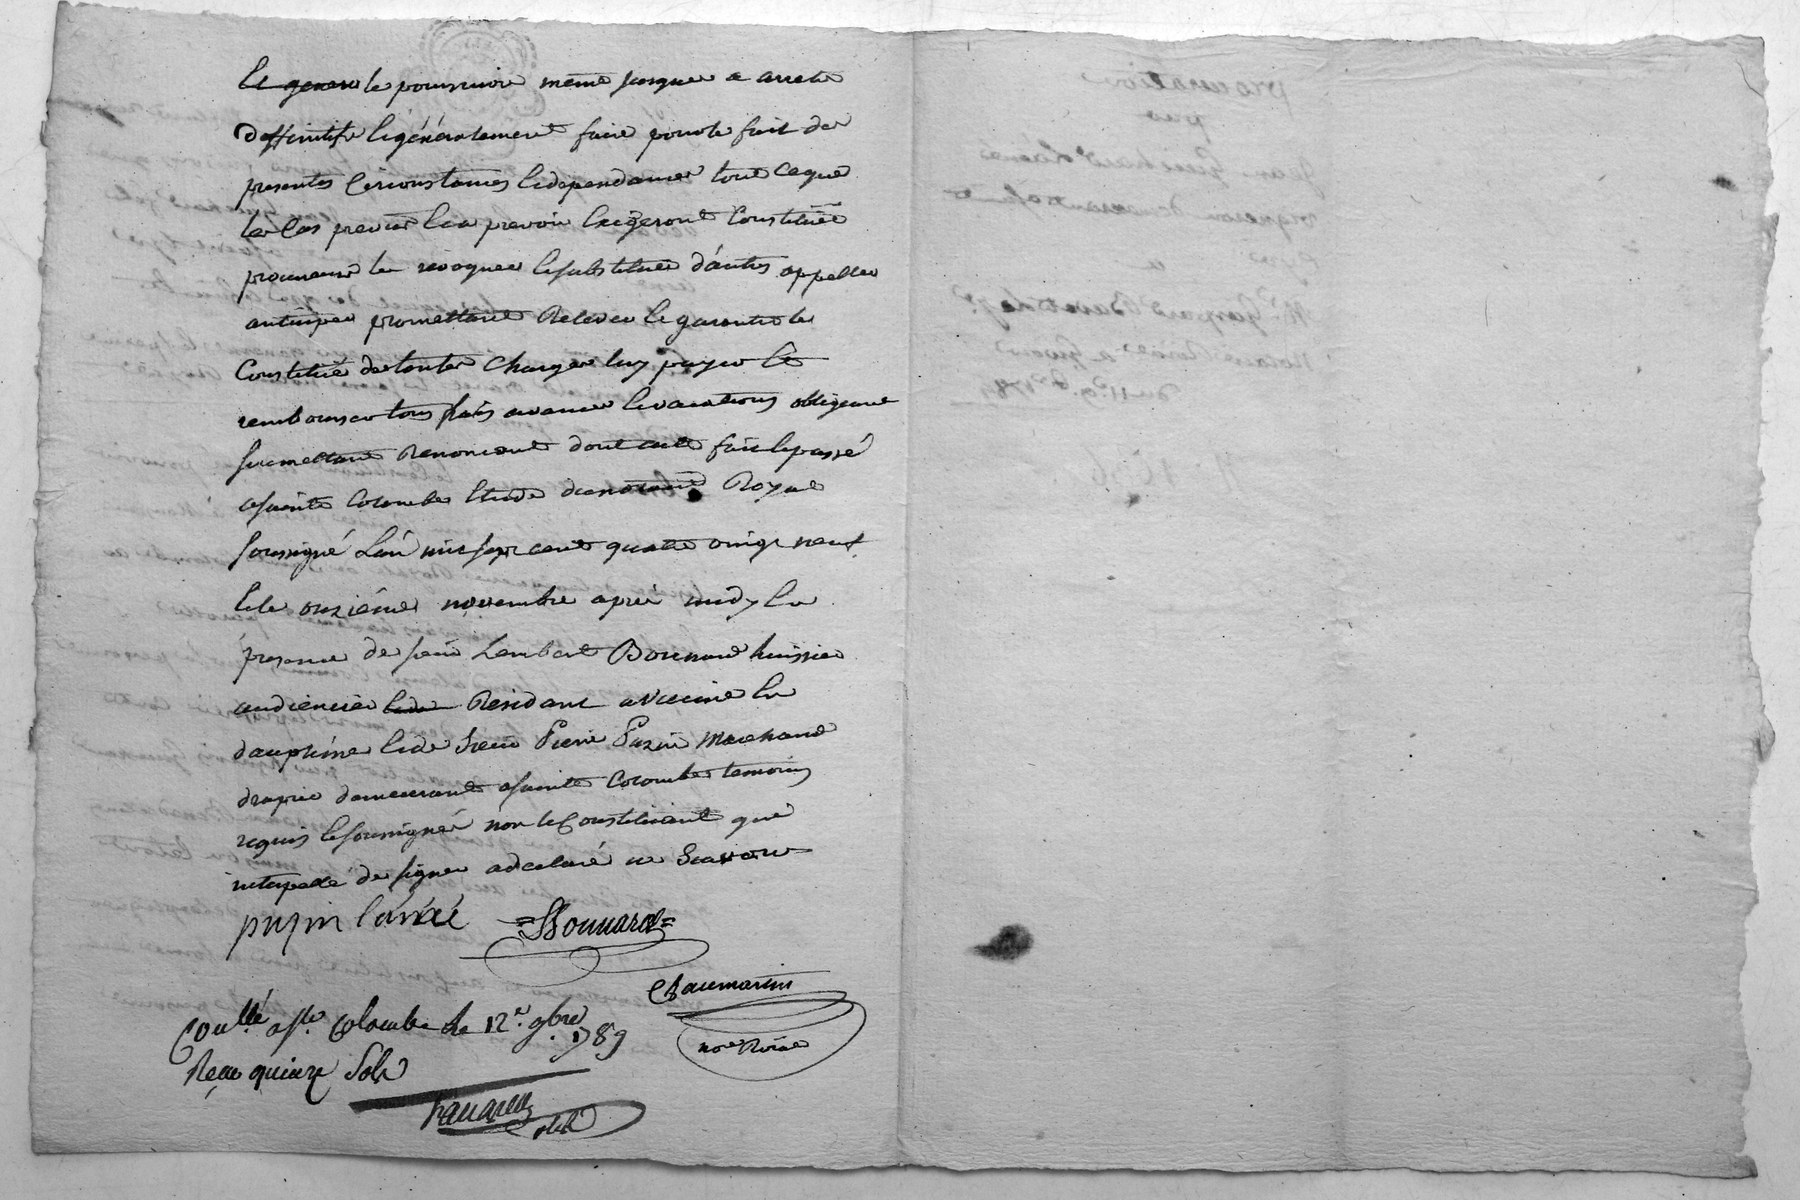 et generale poursuivre meme jusques a arrets
deffinitifs et généralement faire pour le fait des
presentes circonstances et dependances tout ceque
le cas prevus et a prevoir exigeront constituer
procureurs les revoquer et substituer d'autres appeller
anticiper promettant relever et garentir le
constitué de toutes charges luy payer et
rembourser tous frais avances et vacations obligeant
soumettant renoncant dont acte fait et passé
a sainte Colombe etude du notaire Royal
soussigné L'an mil sept cent quatre vingt neuf
et le onzième novembre après midy en
présence de sieur Lambert Bonnard huissier
audiencier residant a Vienne en
dauphiné et de sieur Pierre Puzin marchand
drapier demeurant a sainte Colombe temoins
requis et soussignés non le constituant que
interpellé de signer a declaré ne scavoir
puzin l'ainé = Bonnard =
Chaumartin
nore Roial
Conllé a ste Colombe le 12e. 9bre
1789
Reçu quinze sols
procuration
par
jean Guichard
vigneron demeurant a sainte
a
Me Gaspard
Notaire
du 11e 9bre 1789